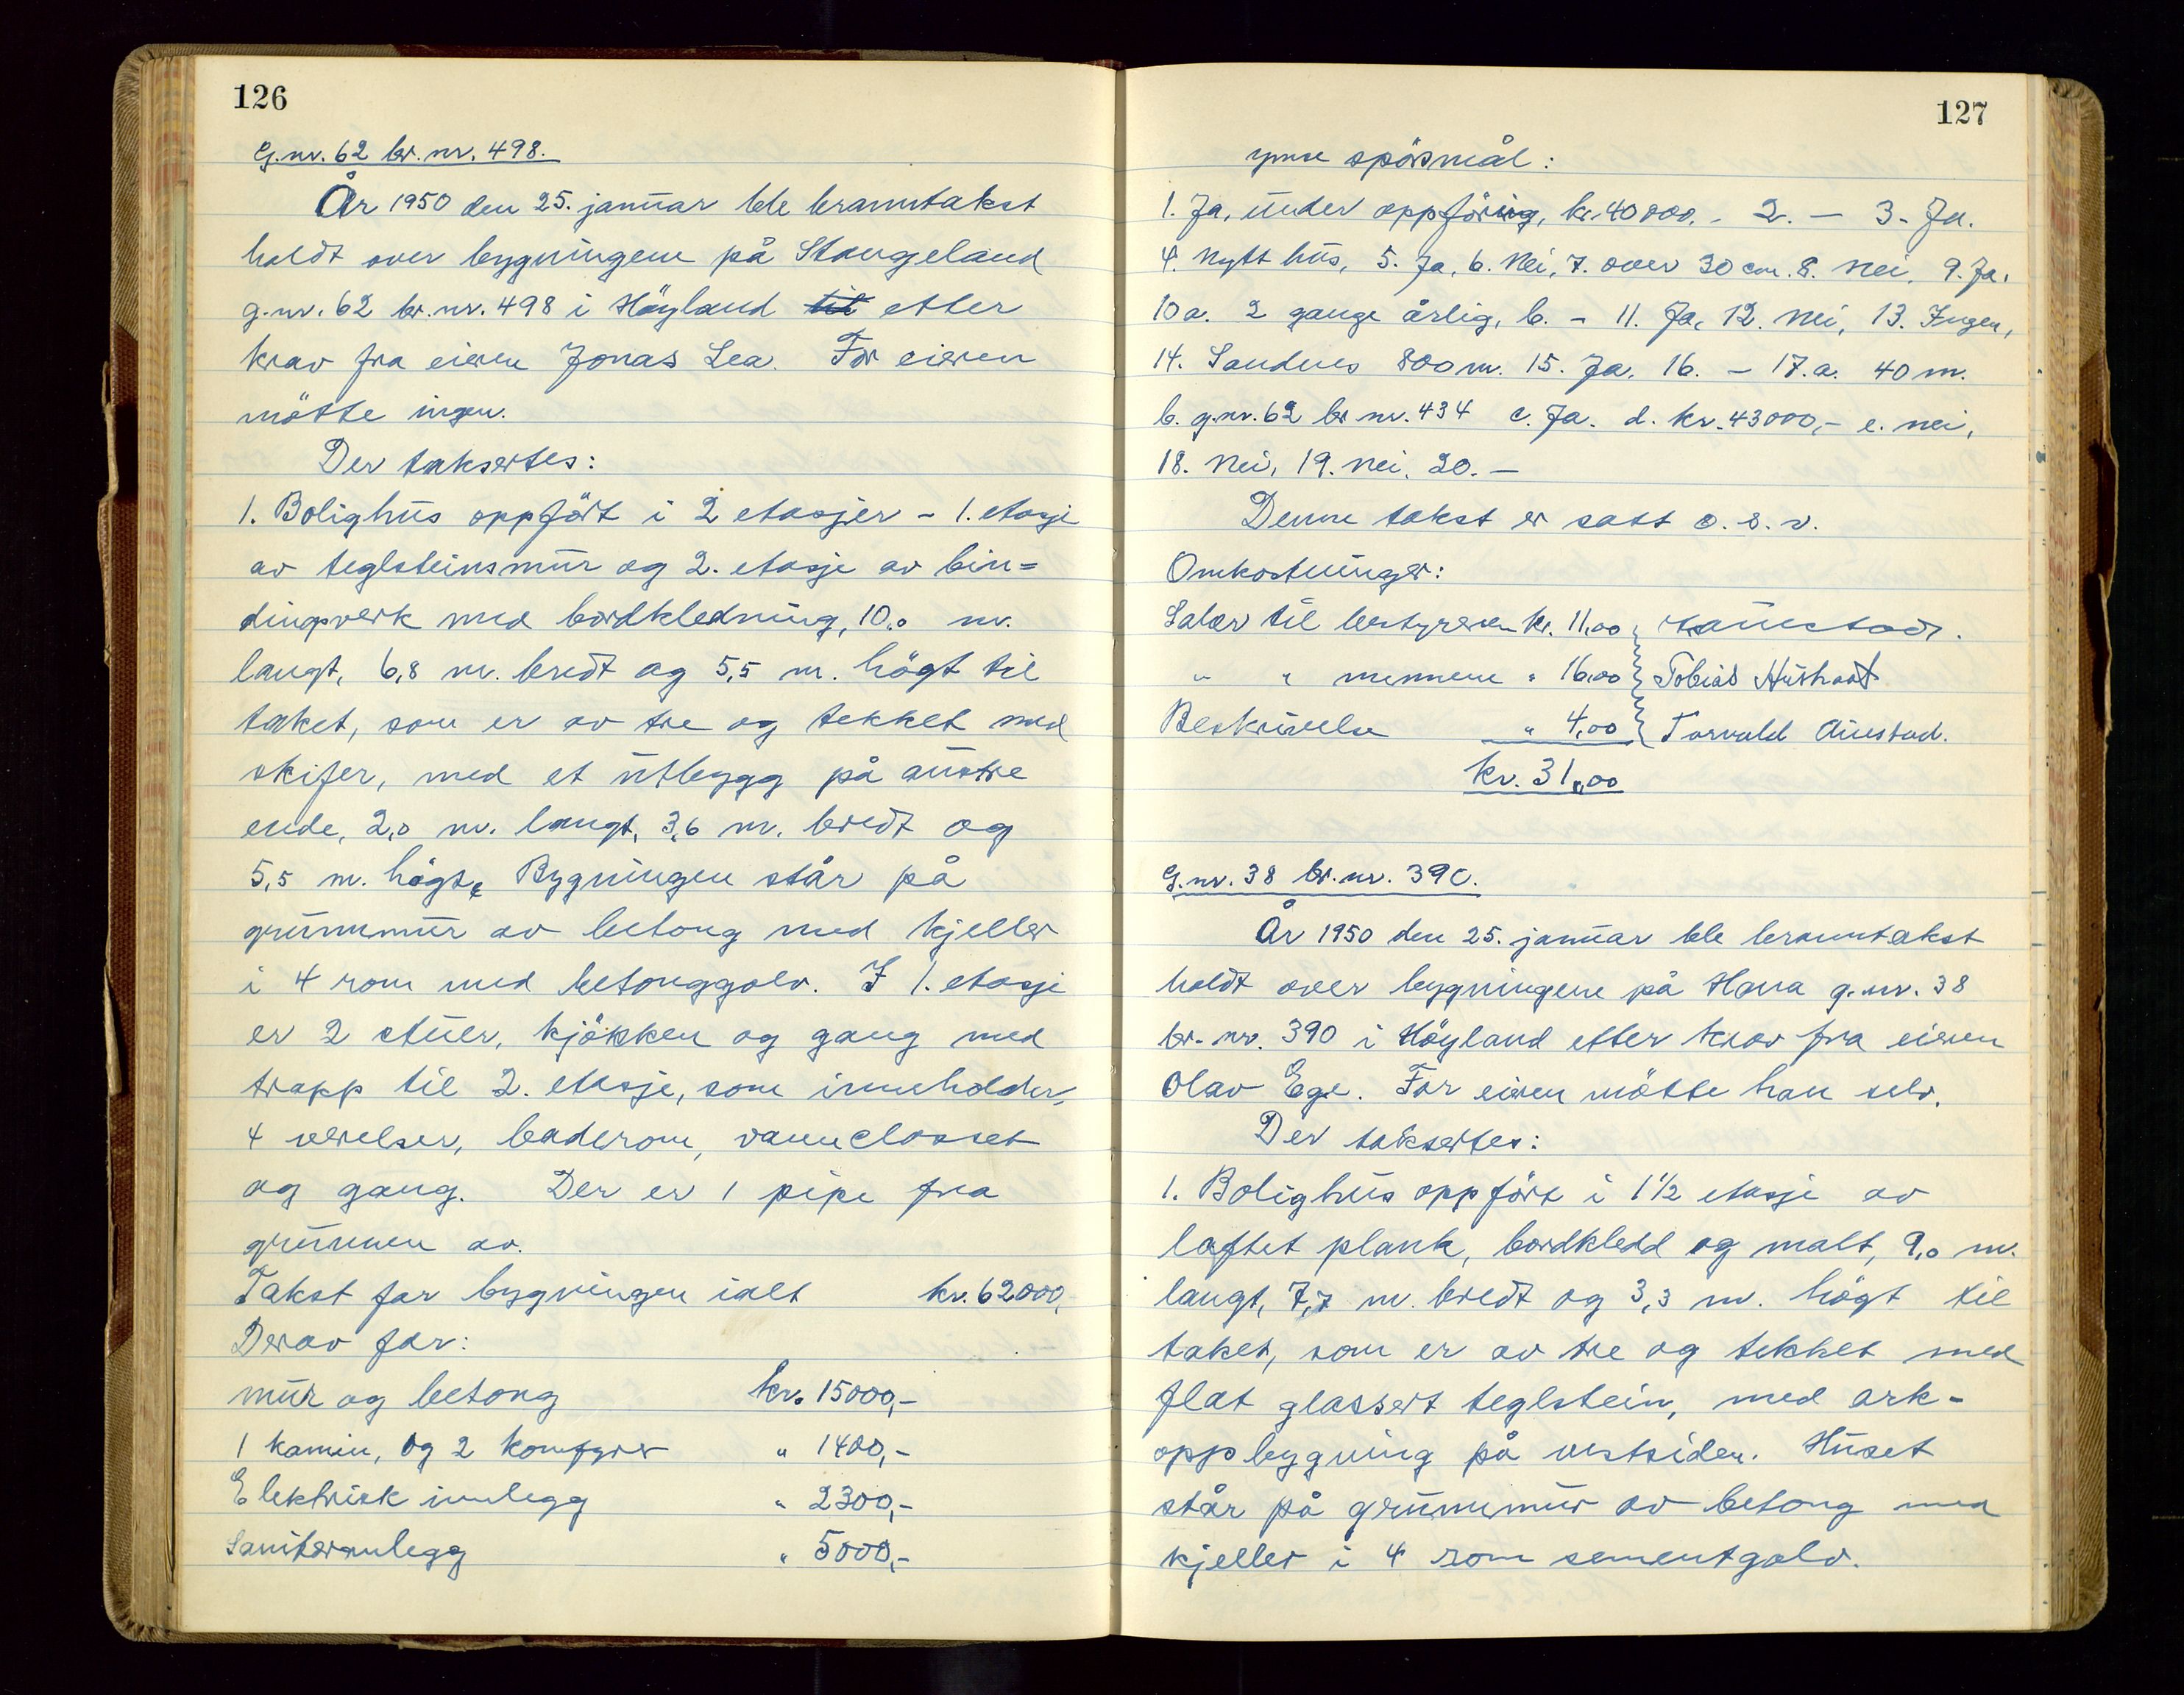 126
G.nr. 62 br. nr. 498.
År 1950 den 25. januar ble branntakst
holdt over bygningene på Stangeland
g.nr. 62 br. nr. 498 i Höyland til etter
krav fra eieren Jonas Lea. For eieren
mötte ingen.
Der taksertes:
1. Bolighus oppfört i 2 etasjer - 1. etasje
av teglsteinsmur og 2. etasje av bin=
dingsverk med bordkledning, 10,0 m.
langt, 6,8 m. bredt og 5,5 m. högt til
taket, som er av tre og tekket med
skifer, med et utbygg på austre
ende, 2,0 m. langt, 3,6 m. bredt og
5,5 m. högt. Bygningen står på
grunnmur av betong med kjeller
i 4 rom med betonggolv. I 1. etasje
er 2 stuer, kjökken og gang med
trapp til 2. etasje, som inneholder,
4 værelser, baderom, vannclosset
og gang. Der er 1 pipe fra
grunnen av.
Takst for bygningen ialt kr. 62000,
Derav for:
mur og betong kr. 15000,-
1 kamin, og 2 komfyrer " 1400,-
Elektrisk innlegg " 2300,-
Saniteranlegg " 5000,-
127
ymse spörsmål:
1. Ja, under oppföring, kr. 40000,- 2. - 3. Ja.
4. Nytt hus, 5. Ja, 6. Nei, 7. over 30 cm. 8. Nei, 9. Ja.
10 a. 2 gange årlig, b. - 11. Ja, 12. Nei, 13. Ingen,
14. Sandnes 800 m. 15. Ja. 16. - 17. a. 40 m.
b. g.nr. 62 br nr. 434 c. Ja. d. kr. 43000,- e. nei,
18. Nei, 19. Nei, 20. -
Denne takst er satt o. s. v.
Omkostninger:
Salær til bestyreren kr. 11,00
" " mennene " 16,00 Tobias Hustvedt
Beskrivelse " 4,00 Torvald Austad.
kr. 31,00
G.nr. 38 br. nr. 390.
År 1950 den 25. januar ble branntakst
holdt over bygningene på Hana g.nr. 38
br. nr. 390 i Höyland etter krav fra eieren
Olav Ege. For eieren mötte han selv.
Der taksertes:
1. Bolighus oppfört i 1 1/2 etasje av
laftet plank, bordkledd og malt, 9,0 m.
langt, 7,7 m. bredt og 3,3 m. högt til
taket, som er av tre og tekket med
flat glassert teglstein, med ark-
oppbygning på vestsiden. Huset
står på grunnmur av betong med
kjeller i 4 rom sementgolv.